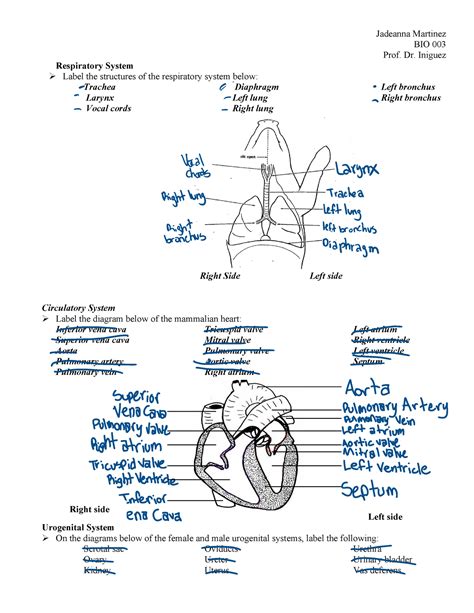 Jadeanna Martinez
BIO 003
Prof. Dr. Iniguez
Respiratory System
➢ Label the structures of the respiratory system below:
Trachea Diaphragm • Left bronchus
Larynx Left lung Right bronchus
Vocal cords Right lung
Vocal chords
Larynx
Right lung
Trachea
Left lung
Right bronchus
left bronchus
Diaphragm
Right Side Left side
Circulatory System
➢ Label the diagram below of the mammalian heart:
Inferior vena cava Tricuspid valve Left atrium
Superior vena cava Mitral valve Right ventricle
Aorta Pulmonary valve Left ventricle
Pulmonary artery Aortic valve Septum
Pulmonary vein Right atrium
Superior Vena Cava
Aorta
Pulmonary Artery
Pulmonary Vein
Pulmonary valve
Left atrium
Right atrium
Aortic valve
Mitral valve
Tricuspid valve
Left Ventricle
Right Ventricle
Septum
Inferior ena Cava
Right side Left side
Urogenital System
➢ On the diagrams below of the female and male urogenital systems, label the following:
Scrotal sac Oviducts Urethra
Ovary Ureter Urinary bladder
Kidney Uterus Vas deferens